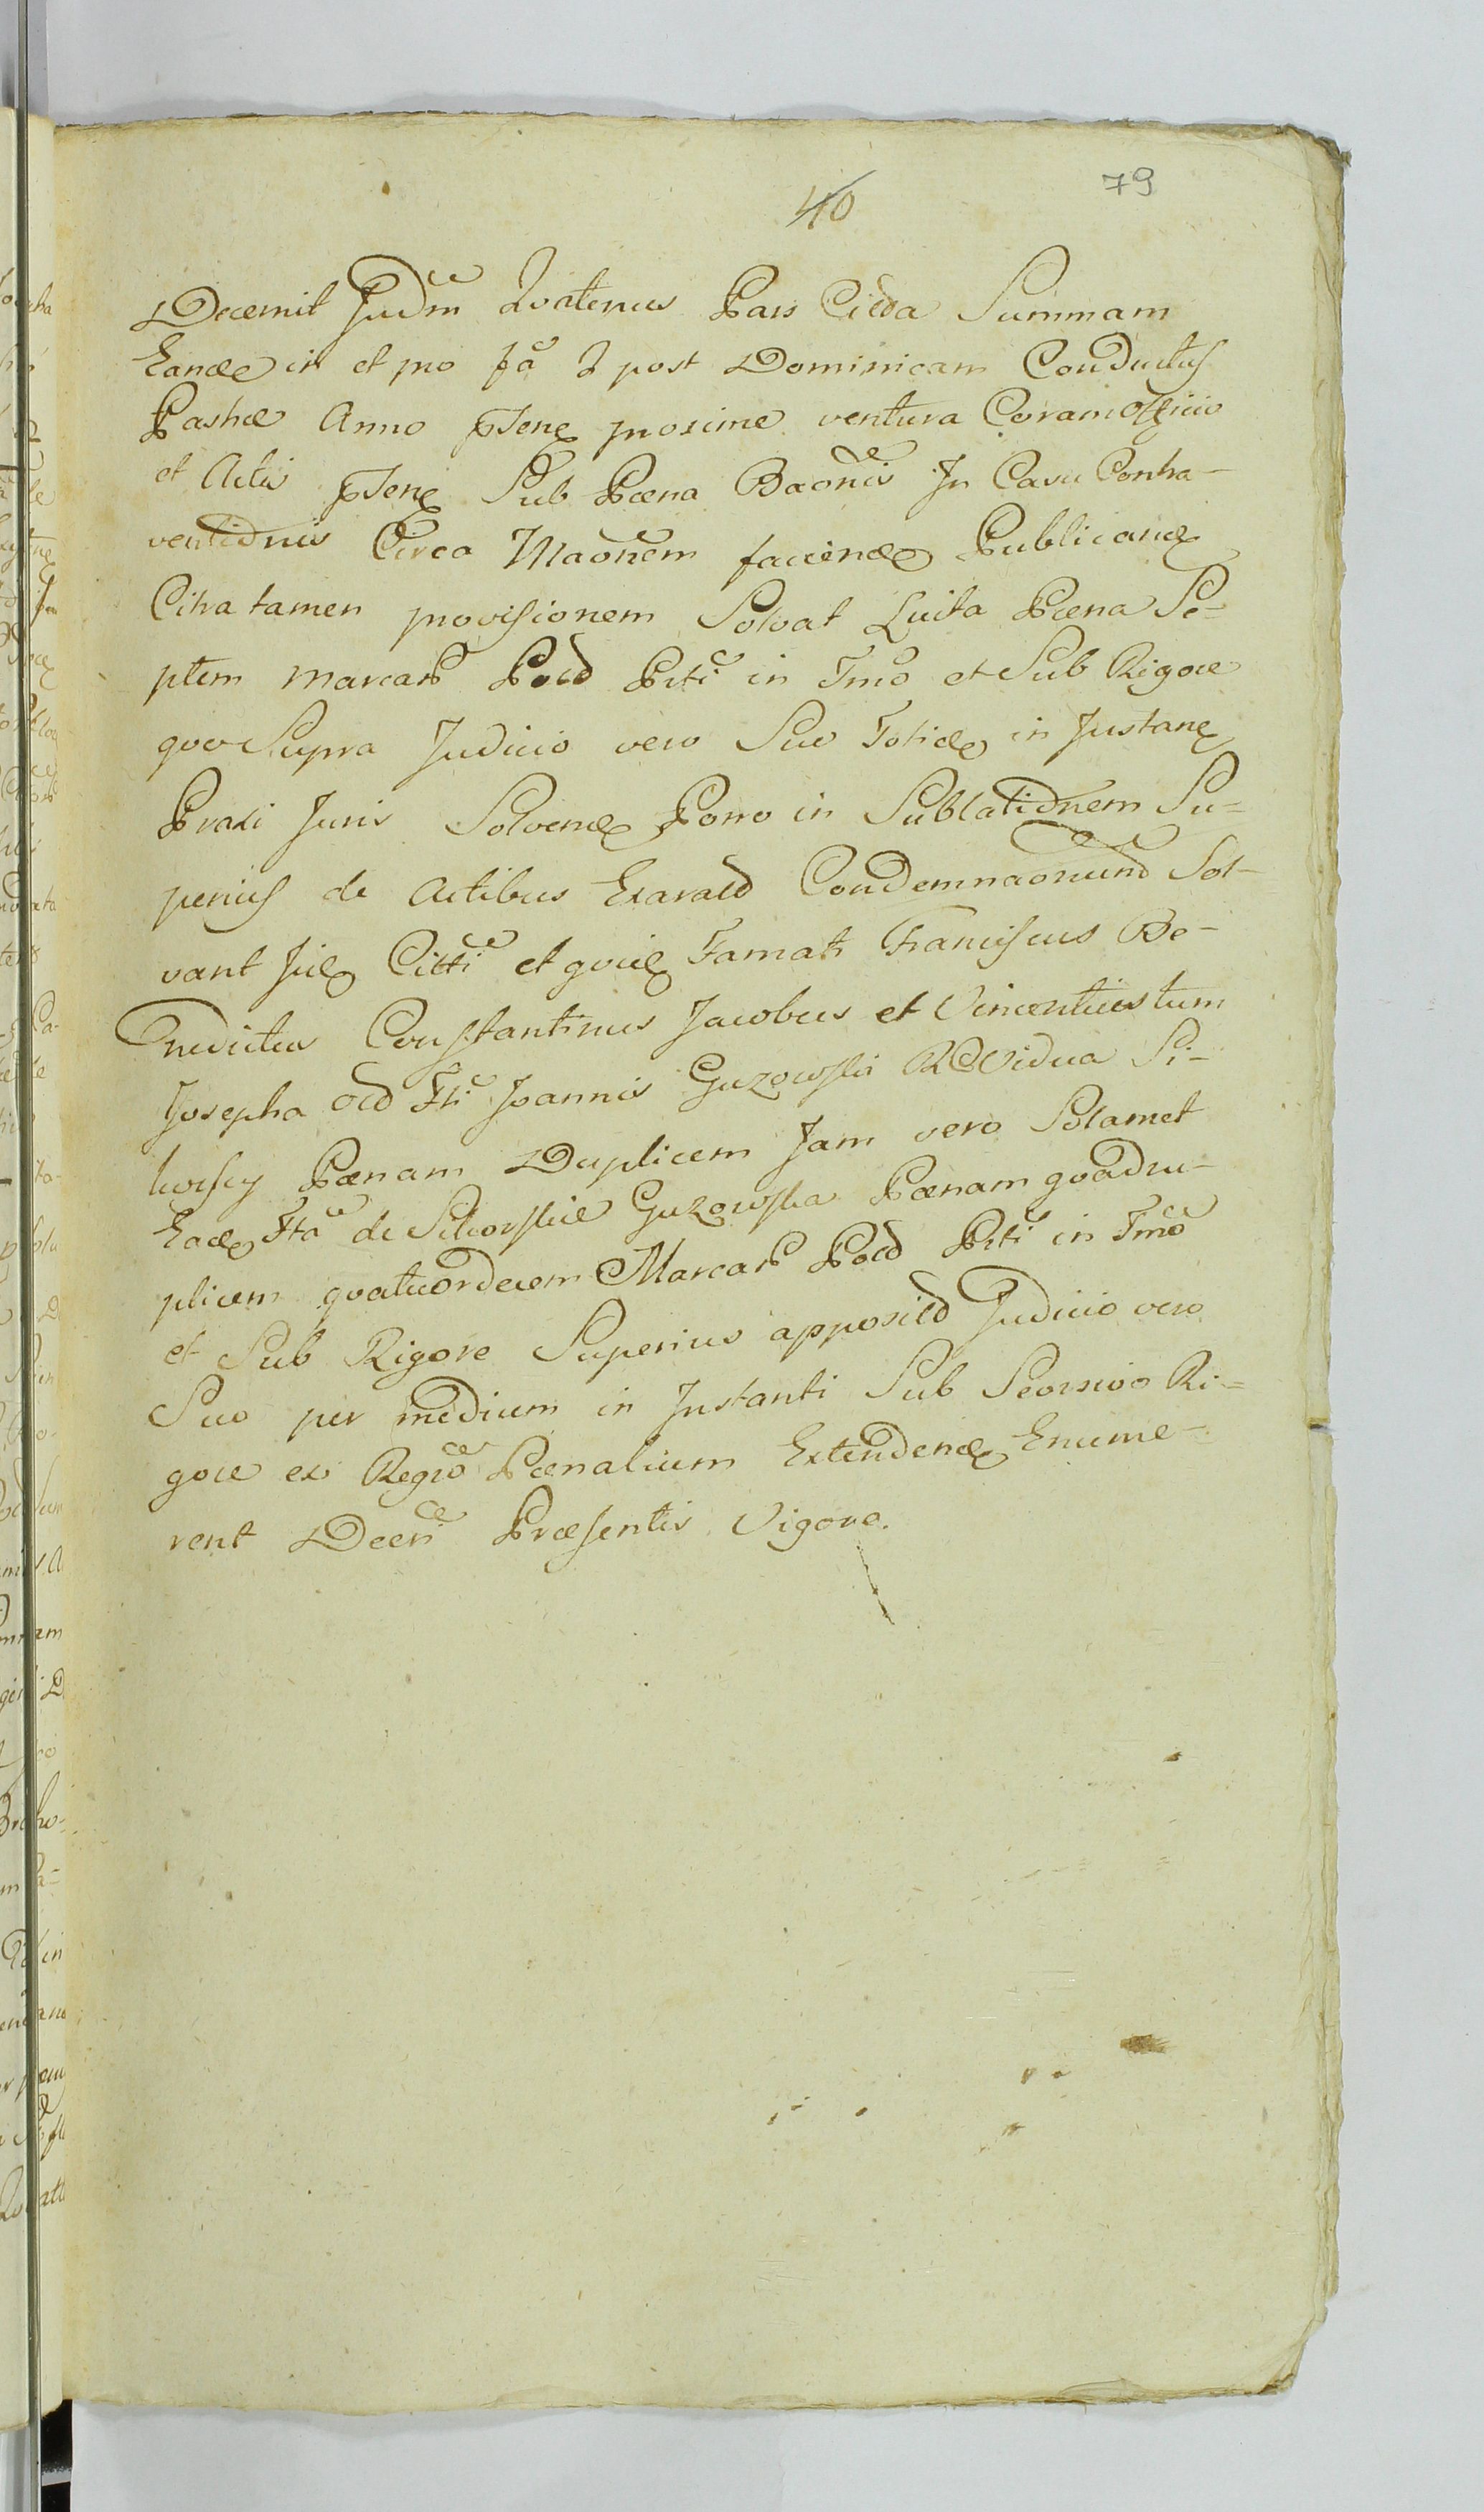 79
40
Decernit Judm Qvatenus Pars Citta Summam
Eande in et pro fa 2 post Dominicam Conductus
Paschæ Anno pseng proxime ventura Coram Officio
et Actis pseng Sub Pœna Baonis In Casu Contra-
ventionis Circa Maonem faciend Publicand
Citra tamen provisionem Solvat Luita Pœna Se-
ptem marcar Pold Prti in Tmo et Sub Rigore
qvo Supra Judicio vero Suo Totid in Instang
Praxi Juris Solvend Porro in Sublationem Su-
perius de Actibus Exarald Condemnaonund Sol-
vant Jid Citti et qvid Famati Franciscus Be-
nedictus Constantinus Jacobus et Vincentius tum
Josepha old Fti Joannis Guzowski R Vidua Si-
korscy Pœnam Duplicem Jam vero Solamet
Ead Fta de Sikorskie Guzowska Pœnam qvadru-
plicem qvatuordecem Marcar Pold Prti in Tmo
et Sub Rigore Superius apposild Judicio vero
Suo per medium in Instanti Sub Seorsivo Ri-
gore ex Regro Pœnalium Extendend Enume-
rent Decri Præsentis Vigore.